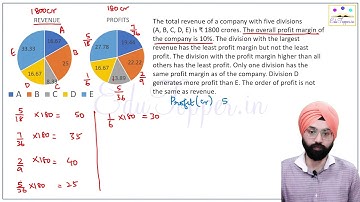 1800cr
180cr
REVENUE
PROFITS
A
B
C
D
E
33.33
16.67
25
16.67
8.33
27.78
13.89
5/18
7/36
2/9
5/36
1/6
A B C D E
5/18 ×180 = 50
7/36 ×180 = 35
2/9 ×180 = 40
5/36 ×180 = 25
1/6 ×180 = 30
The total revenue of a company with five divisions
(A, B, C, D, E) is ₹ 1800 crores. The overall profit margin of
the company is 10%. The division with the largest
revenue has the least profit margin but not the least
profit. The division with the profit margin higher than all
others has the least profit. Only one division has the
same profit margin as of the company. Division D
generates more profit than E. The order of profit is not
the same as revenue.
Profit (cr) 5